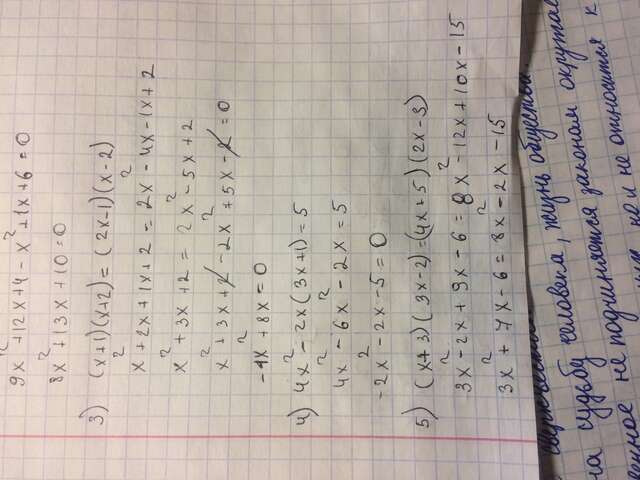 9x² + 12x + 4 - x² + 1x + 6 = 0
8x² + 13x + 10 = 0
3) (x+1)(x+2) = (2x-1)(x-2)
x² + 2x + 1x + 2 = 2x² - 4x - 1x + 2
x² + 3x + 2 = 2x² - 5x + 2
x² + 3x + 2 - 2x² + 5x - 2 = 0
-1x² + 8x = 0
4) 4x² - 2x(3x+1) = 5
4x² - 6x² - 2x = 5
-2x² - 2x - 5 = 0
5) (x+3)(3x-2) = (4x+5)(2x-3)
3x² - 2x + 9x - 6 = 8x² - 12x + 10x - 15
3x² + 7x - 6 = 8x² - 2x - 15
на судьбу человека, жизнь общества.
не подчиняется законам
но и не относится к